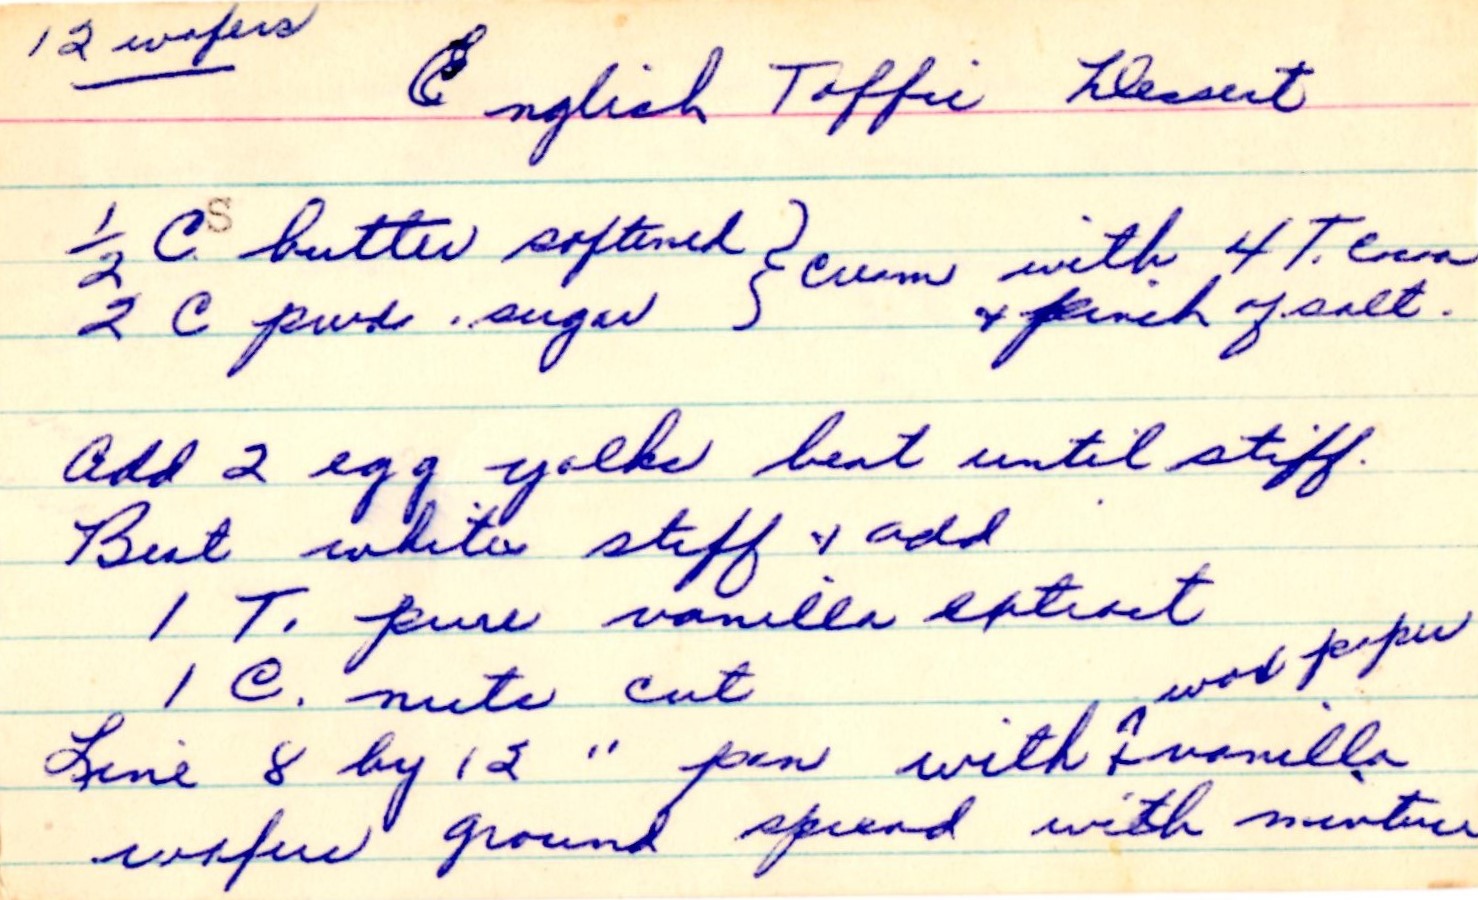 12 wafers
English Toffie Dessert
1/2 C. S butter softened } cream with 4 T. Cocoa
2 C pwd. sugar & pinch of salt.
Add 2 egg yolks beat until stiff.
Beat whites stiff & add
1 T. pure vanilla extract
1 C. nuts cut
wax paper
Line 8 by 12 " pan with & vanilla
wafers ground spread with mixture